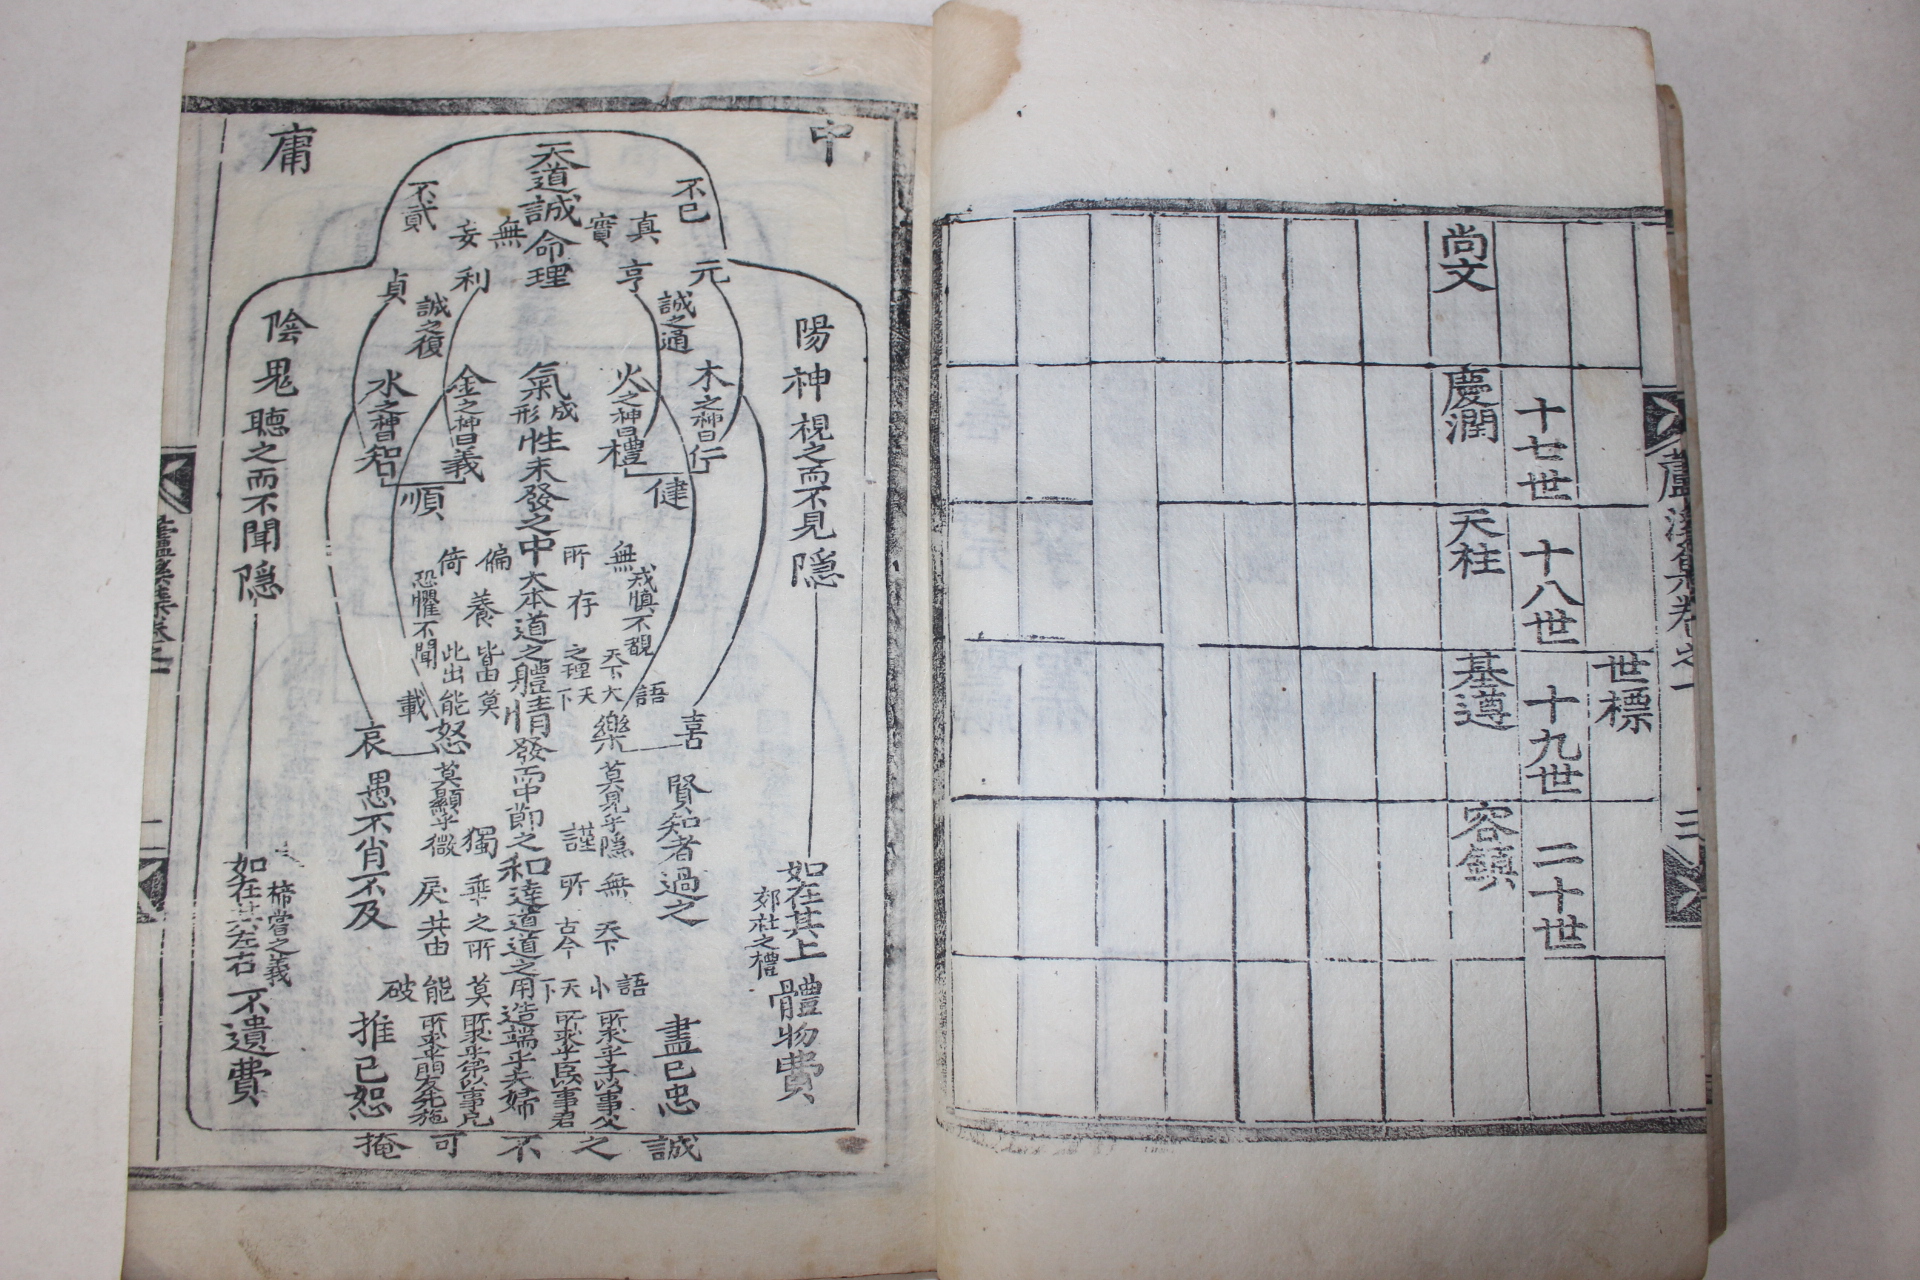 蘆溪集卷之一
三
世標
十七世
十八世
十九世
二十世
尚文
慶潤
天柱
基遵
容鎮
中
庸
天道誠命理
真實
無妄
不已
不貳
元
亨
利
貞
誠之通
誠之復
陽神視之而不見隠
如在其上體物費
郊社之禮
陰鬼聽之而不聞隠
如在其左右不遺費
禘嘗之義
木之神曰仁
火之神曰禮
金之神曰義
水之神曰智
健
順
氣成形性未發之中大本道之體情發而中節之和達道道之用造端乎夫婦
無所偏倚
戒慎不覩
恐懼不聞
存養
天下之理皆由此出
語大天下莫能載
喜
樂
怒
哀
莫見乎隠
莫顯乎微
謹獨
無所乖戾
天下古今之所共由
語小天下莫能破
賢知者過之
愚不肖不及
盡己忠
推己恕
所求乎子以事父
所求乎臣以事君
所求乎弟以事兄
所求乎朋友先施
誠之不可掩
蘆溪集卷之一
二